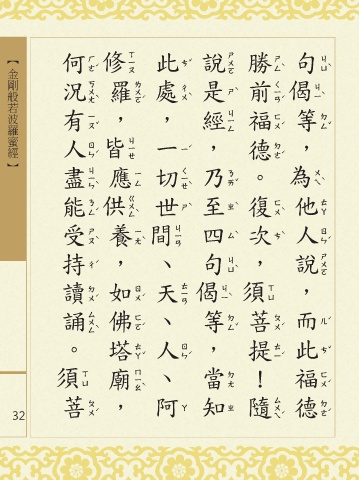 句偈等，為他人說，而此福德
勝前福德。復次，須菩提！隨
說是經，乃至四句偈等，當知
此處，一切世間、天、人、阿
修羅，皆應供養，如佛塔廟，
何況有人盡能受持讀誦。須菩
【金剛般若波羅蜜經】
32